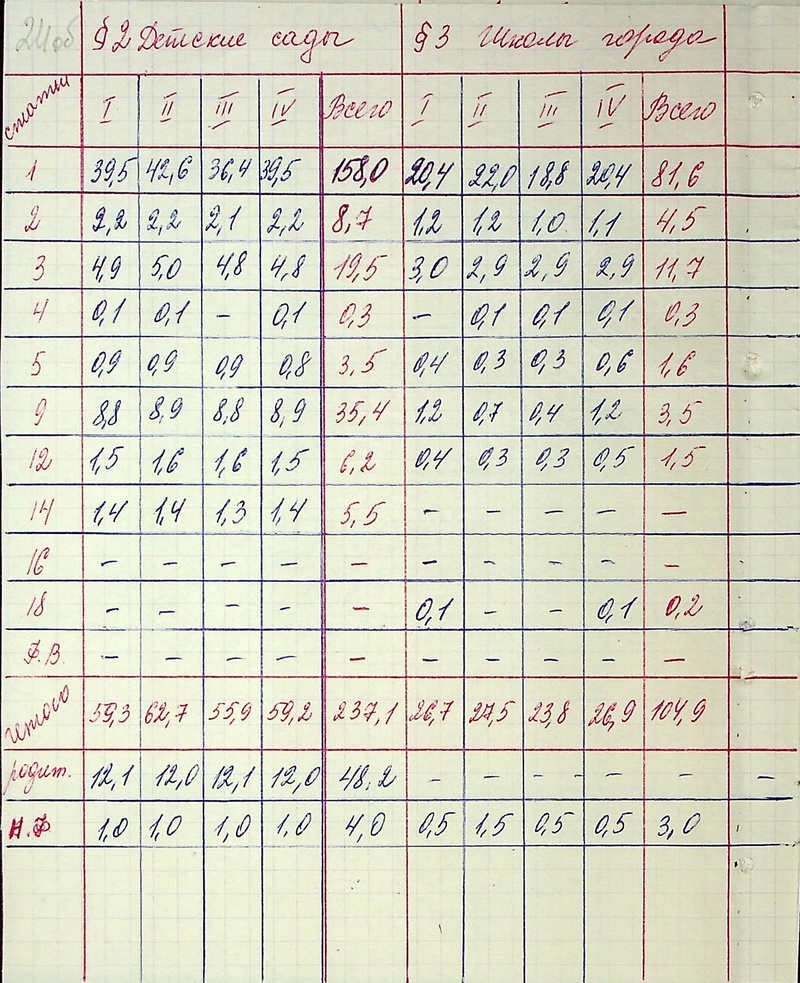 24об § 2 Детские сады § 3 Школы города
статьи I II III IV Всего I II III IV Всего
1 39,5 42,6 36,4 39,5 158,0 20,4 22,0 18,8 20,4 81,6
2 2,2 2,2 2,1 2,2 8,7 1,2 1,2 1,0 1,1 4,5
3 4,9 5,0 4,8 4,8 19,5 3,0 2,9 2,9 2,9 11,7
4 0,1 0,1 – 0,1 0,3 – 0,1 0,1 0,1 0,3
5 0,9 0,9 0,9 0,8 3,5 0,4 0,3 0,3 0,6 1,6
9 8,8 8,9 8,8 8,9 35,4 1,2 0,7 0,4 1,2 3,5
12 1,5 1,6 1,6 1,5 6,2 0,4 0,3 0,3 0,5 1,5
14 1,4 1,4 1,3 1,4 5,5 – – – – –
16 – – – – – – – – – –
18 – – – – – 0,1 – – 0,1 0,2
Ф.В. – – – – – – – – – –
Итого 59,3 62,7 55,9 59,2 237,1 26,7 27,5 23,8 26,9 104,9
родит. 12,1 12,0 12,1 12,0 48,2 – – – – – –
Н.Ф 1,0 1,0 1,0 1,0 4,0 0,5 1,5 0,5 0,5 3,0